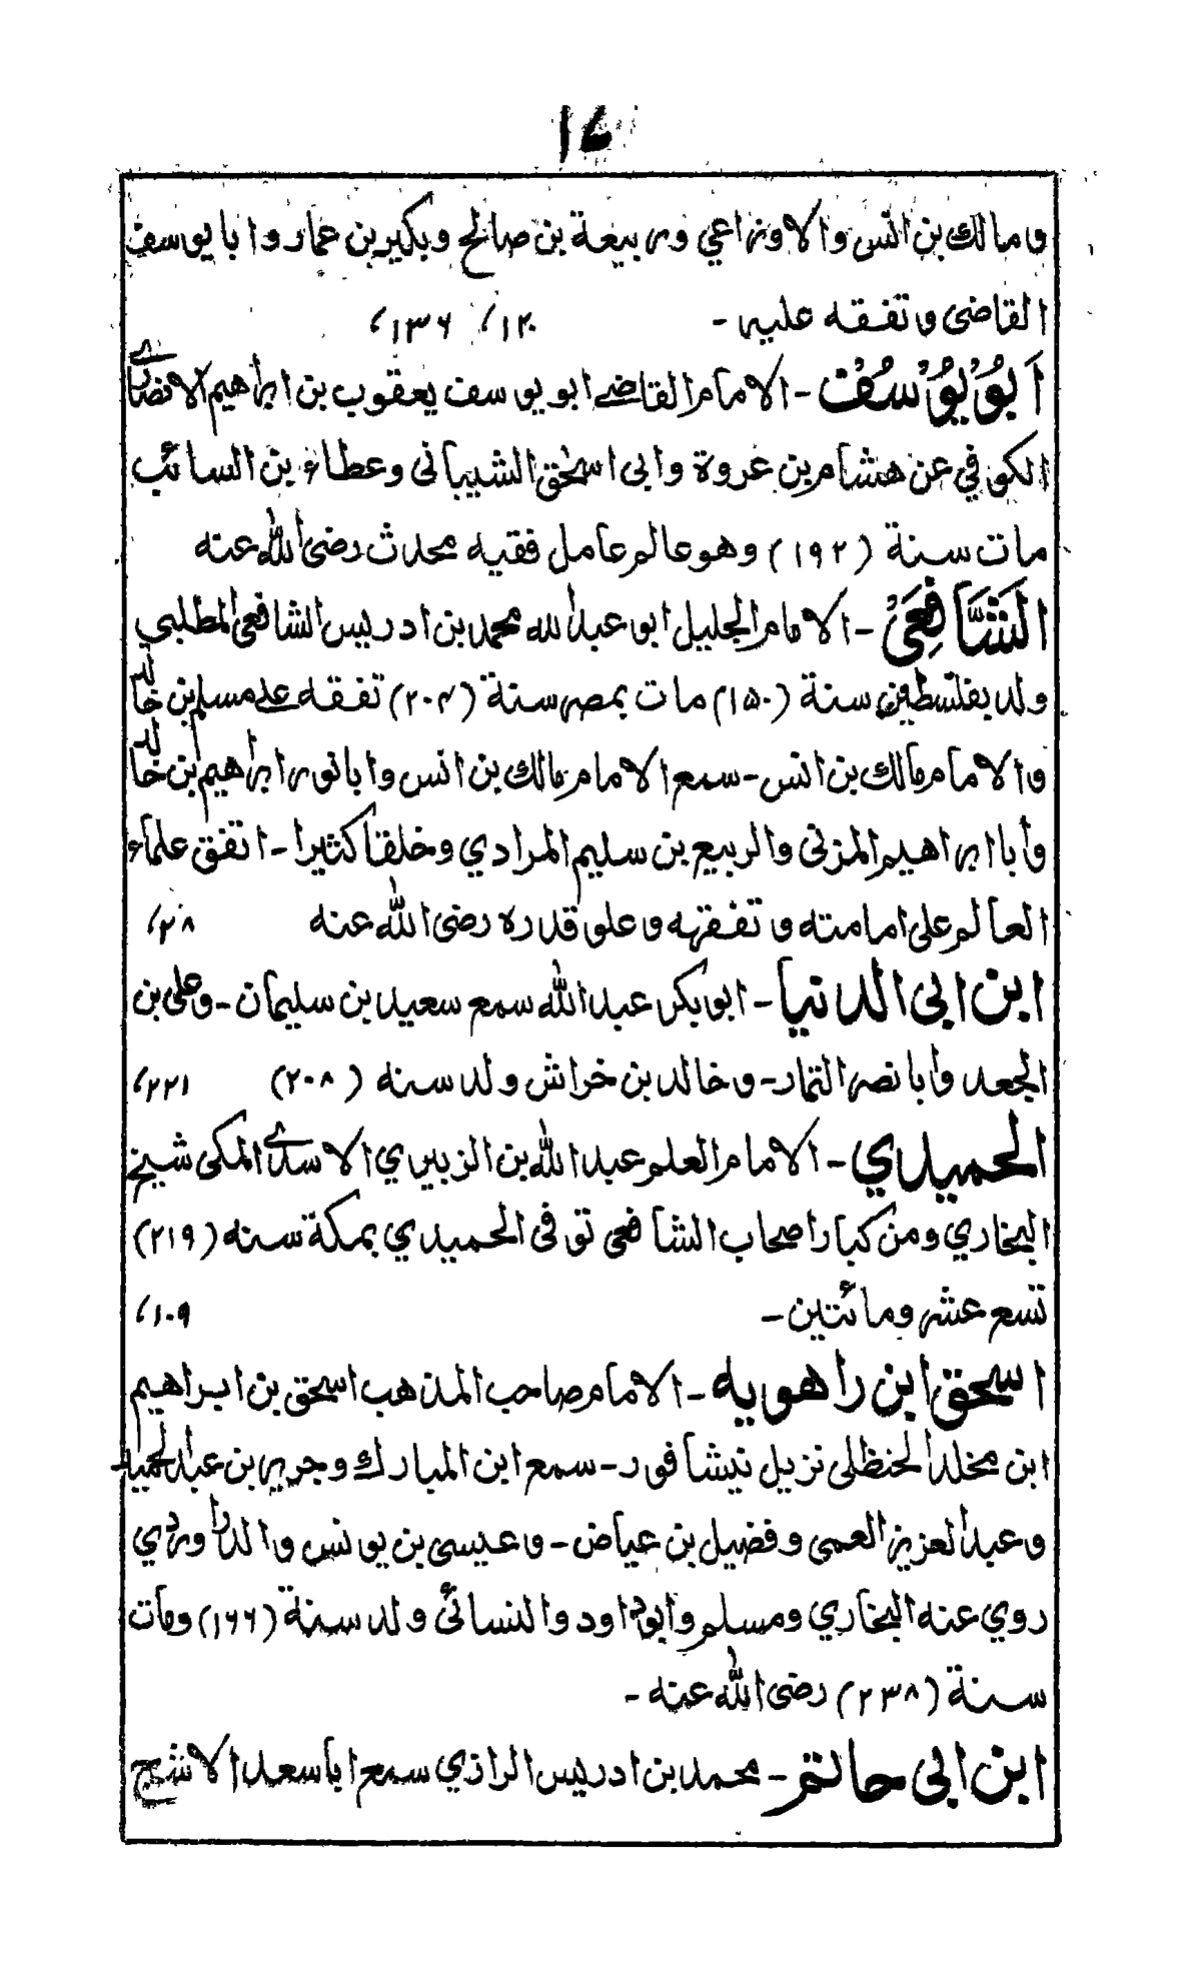 ١٤
ومالك بن انس والاوزاعي وربيعة بن صالح وبكير بن عمار وابا يوسف
القاضى وتفقه عليه - ١٢٠/ ١٣٦/
اَبُوْيُوْسُفْ - الامام القاضي ابو يوسف يعقوب بن ابراهيم الانصاري
الكوفي عن هشام بن عروة وابى اسحٰق الشيبانى وعطاء بن السائب
مات سنة (١٩٢) وهو عالم عامل فقيه محدث رضى الله عنه
الشَّافِعَيْ - الامام الجليل ابو عبد الله محمد بن ادريس الشافعى المطلبي
ولد بفلسطين سنة (١٥٠) مات بمصر سنة (٢٠٤) تفقه على مسلم بن خالد
والامام مالك بن انس - سمع الامام مالك بن انس وابا ثور ابراهيم بن خالد
وأبا ابراهيم المزنى والربيع بن سليم المرادي وخلقا كثيرا - اتفق علماء
العالم على امامته وتفقهه وعلو قدره رضى الله عنه ٢٨/
ابن ابى الدنيا - ابو بكر عبد الله سمع سعيد بن سليمان - وعلى بن
الجعد وأبا نصر التمار - وخالد بن خراش ولد سنه (٢٠٨) ٢٢١/
الحميدي - الامام العلم عبد الله بن الزبيري الاسدي المكى شيخ
البخاري ومن كبار اصحاب الشافعى توفى الحميدي بمكة سنه (٢١٩)
تسع عشر ومائتين - ١٠٩/
اسحٰق ابن راهويه - الامام صاحب المذهب اسحق بن ابراهيم
ابن مخلد الحنظلى نزيل نيشافور - سمع ابن المبارك وجرير بن عبد الحميد
وعبد العزيز العمى وفضيل بن عياض - وعيسى بن يونس والدراوردي
روي عنه البخاري ومسلم وابوداود والنسائى ولد سنة (١٦٦) ومات
سنة (٢٣٨) رضى الله عنه -
ابن ابى حاتم - محمد بن ادريس الرازي سمع ابا سعد الاشج